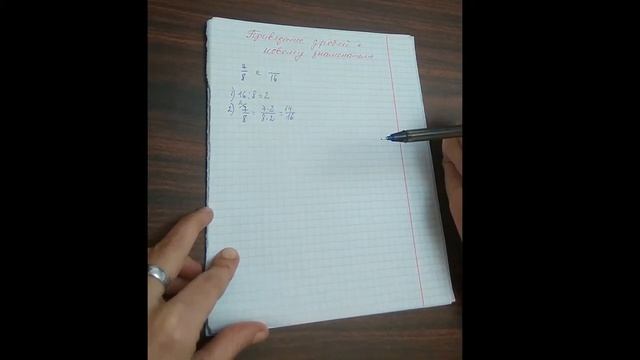 Приведение дробей к
новому знаменателю
7/8 = /16
1) 16:8=2
2) 7/8 = 7·2/8·2 = 14/16